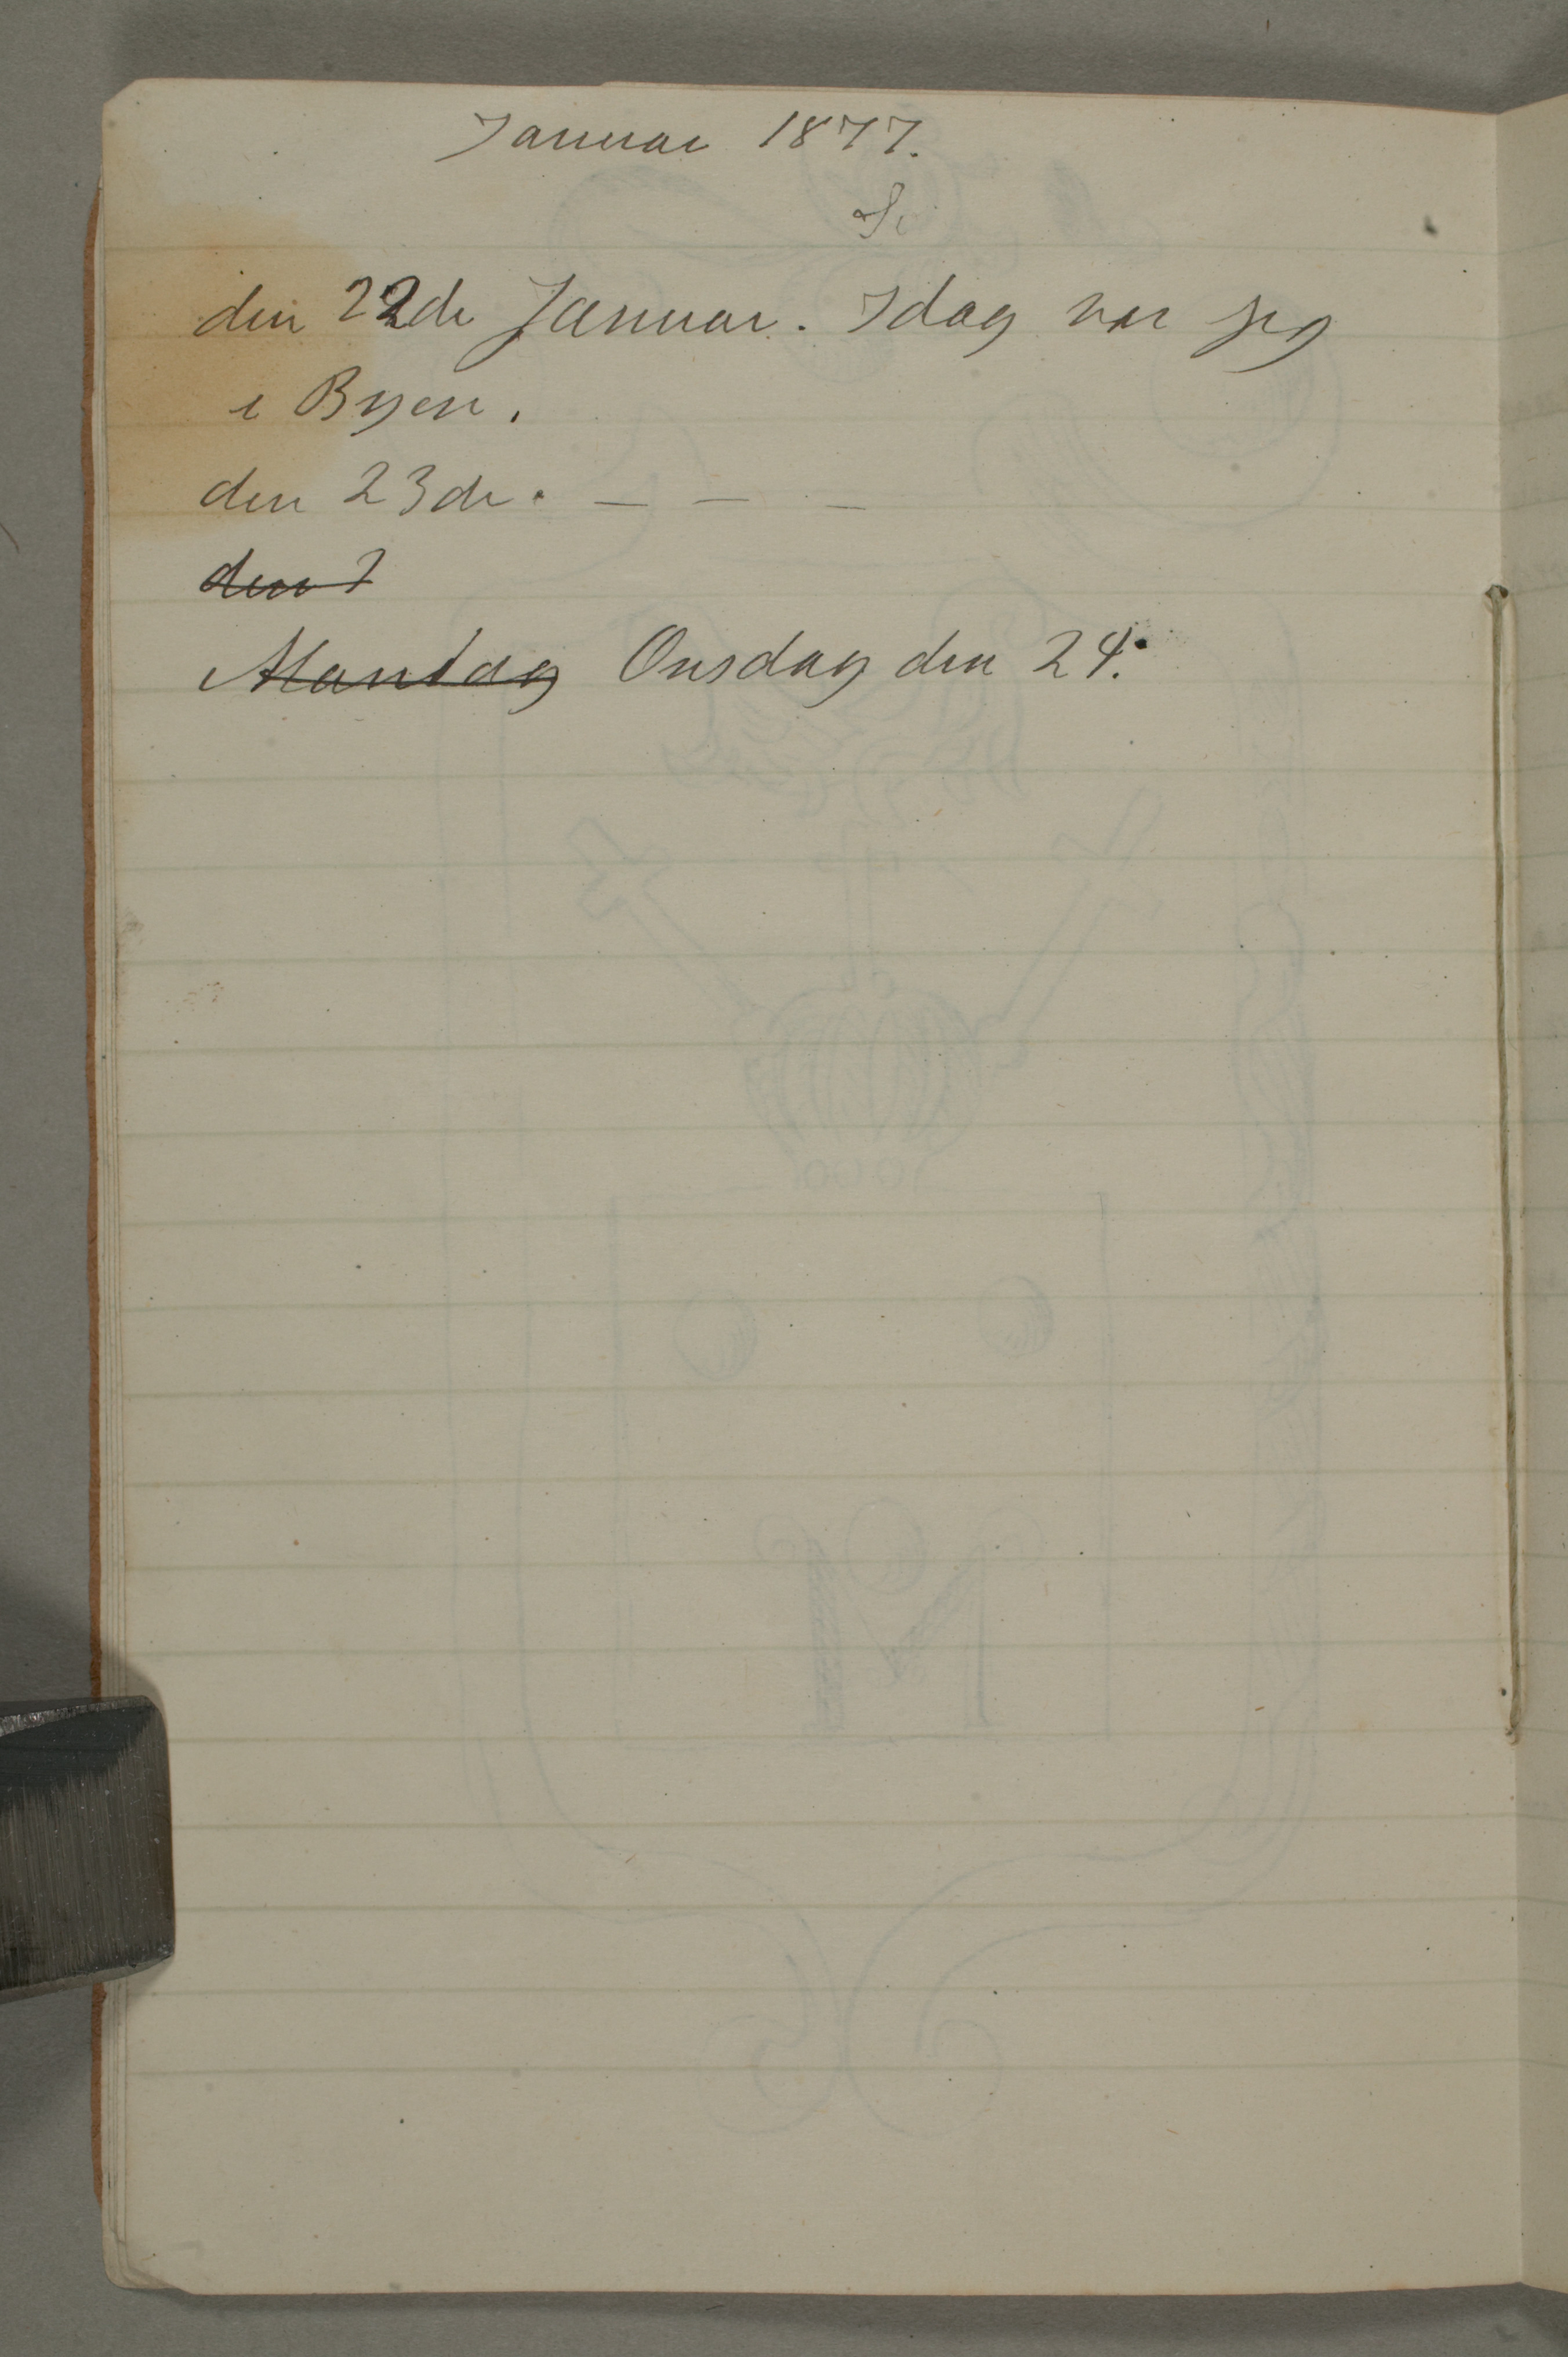 Januar 1877.
den 22de Januar. Idag var jeg
i Byen.
den 23de. — — —
den 2
Mandag Onsdag den 24.